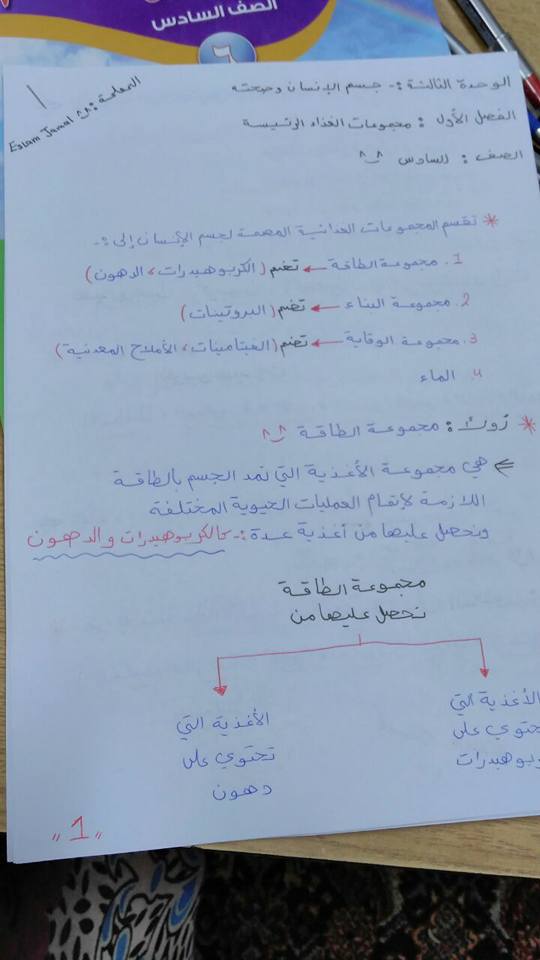 الصف السادس
٦
الوحدة الثالثة :- جسم الإنسان وصحته
الفصل الأول : مجموعات الغذاء الرئيسة
الصف : السادس ^_^
المعلمة :- Eslam Jamal
* تقسم المجموعات الغذائية المهمة لجسم الإنسان إلى :-
1. مجموعة الطاقة ← تضم (الكربوهيدرات، الدهون)
2. مجموعة البناء ← تضم (البروتينات)
3. مجموعة الوقاية ← تضم (الفيتامينات، الأملاح المعدنية)
4. الماء
* أولاً : مجموعة الطاقة ^_^
هي مجموعة الأغذية التي تمد الجسم بالطاقة
اللازمة لإتمام العمليات الحيوية المختلفة
ونحصل عليها من أغذية عدة :- كالكربوهيدرات والدهون
مجموعة الطاقة
نحصل عليها من
الأغذية التي
تحتوي على
وبوهيدرات
الأغذية التي
تحتوي على
دهون
"1"